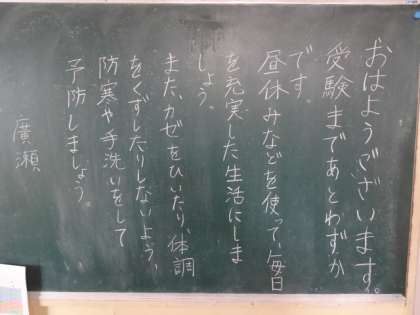 おはようございます。
受験まであとわずか
です。
昼休みなどを使って、毎日
を充実した生活にしま
しょう。
また、カゼをひいたり、体調
をくずしたりしないよう、
防寒や手洗いをして
予防しましょう。
廣瀬